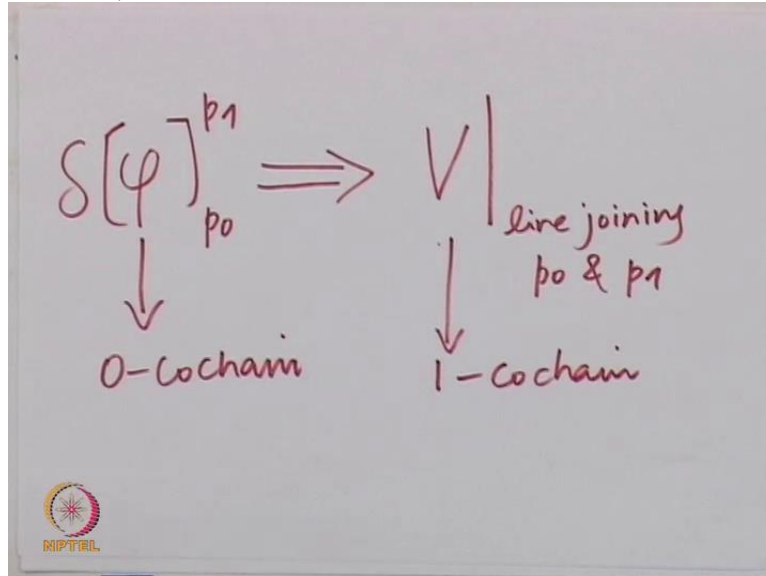 δ[φ]_{p0}^{p1} ⇒ V|_{line joining p0 & p1}
↓ ↓
0-cochain 1-cochain
NPTEL